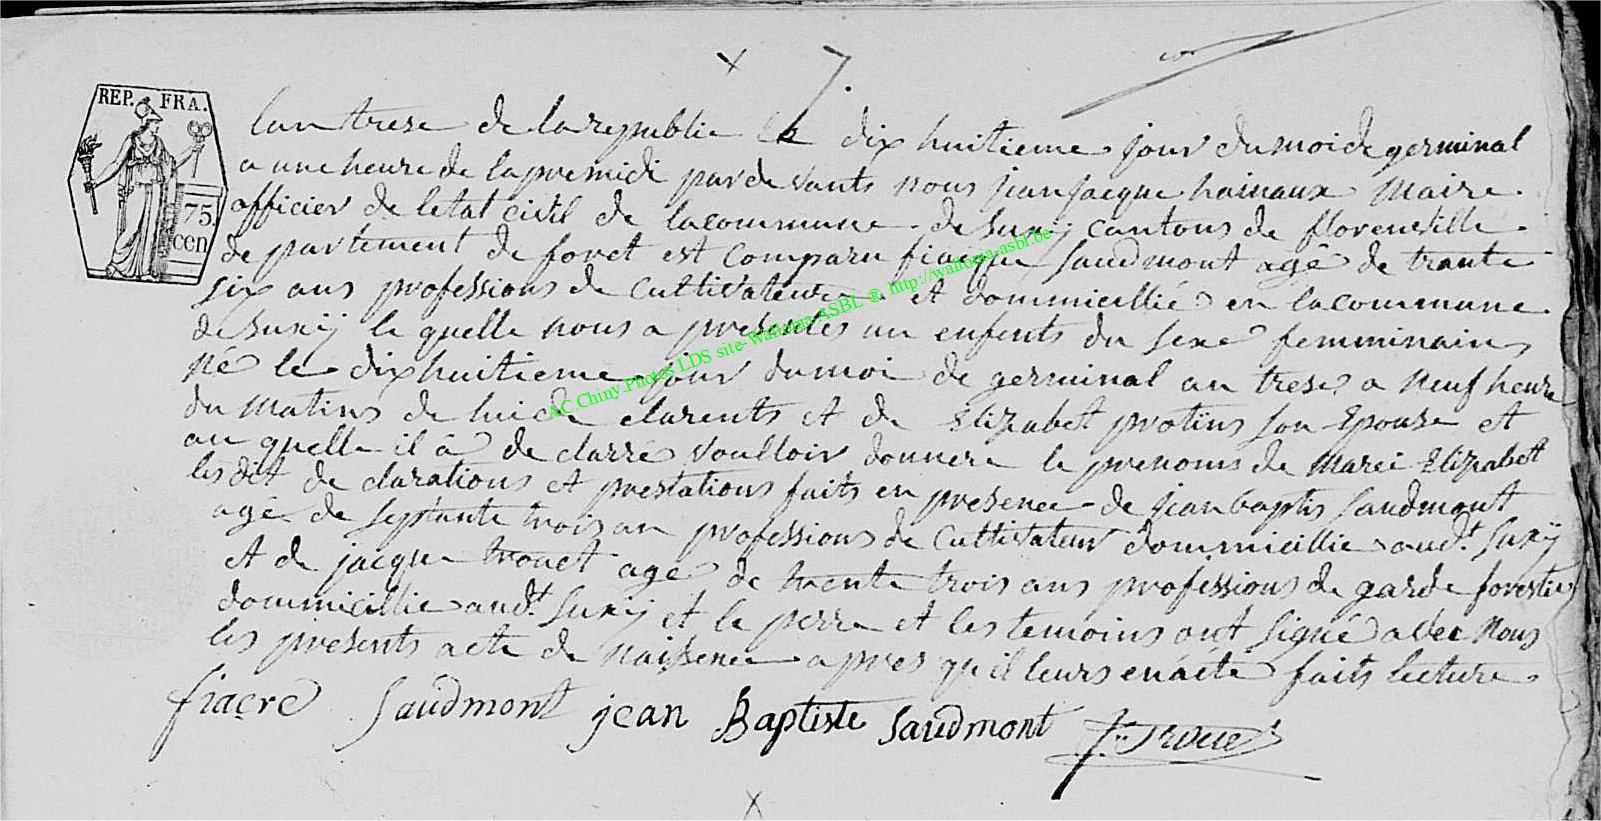 7.
REP. FRA.
75.
cen
lan trese de la republie Le dix huitieme jour du moi de germinal
a une heure de lapremidi par de vants nous jean jacque hainaux Maire
officier de letat civil de lacommune de Suxÿ cantons de florenville
de partement de foret est comparu fiacque Saudmont agé de trante
six ans professions de Cultivateure et dommicillié en lacommune
de Suxÿ le quelle nous a presentes un enfents du sexe femminains
Né le dixhuitieme jour du moi de germinal an trese a neuf heure
du matins de luide clarents et de Elizabet protins son Epouse et
au quelle il â de clarré voulloir donnere le prenoms de Marei Elizabett
les dit de clarations et prestations faits en presence de jean baptis Saudmont
agé de septante trois an professions de Cultivateur dommicillie aud.t Suxÿ
et de jacque trouet age de trente trois ans professions de garde forestie
dommicillie aud.t Suxÿ et le perre et les temoins ont signé avec Nous
les presents acte de naissence apres qu'il leurs en acte faits lecture
fiacre Saudmont jean Baptiste Saudmont J: Troue
AC Chiny Photos LDS site-Wallonia ASBL ® http://wallonia-asbl.be